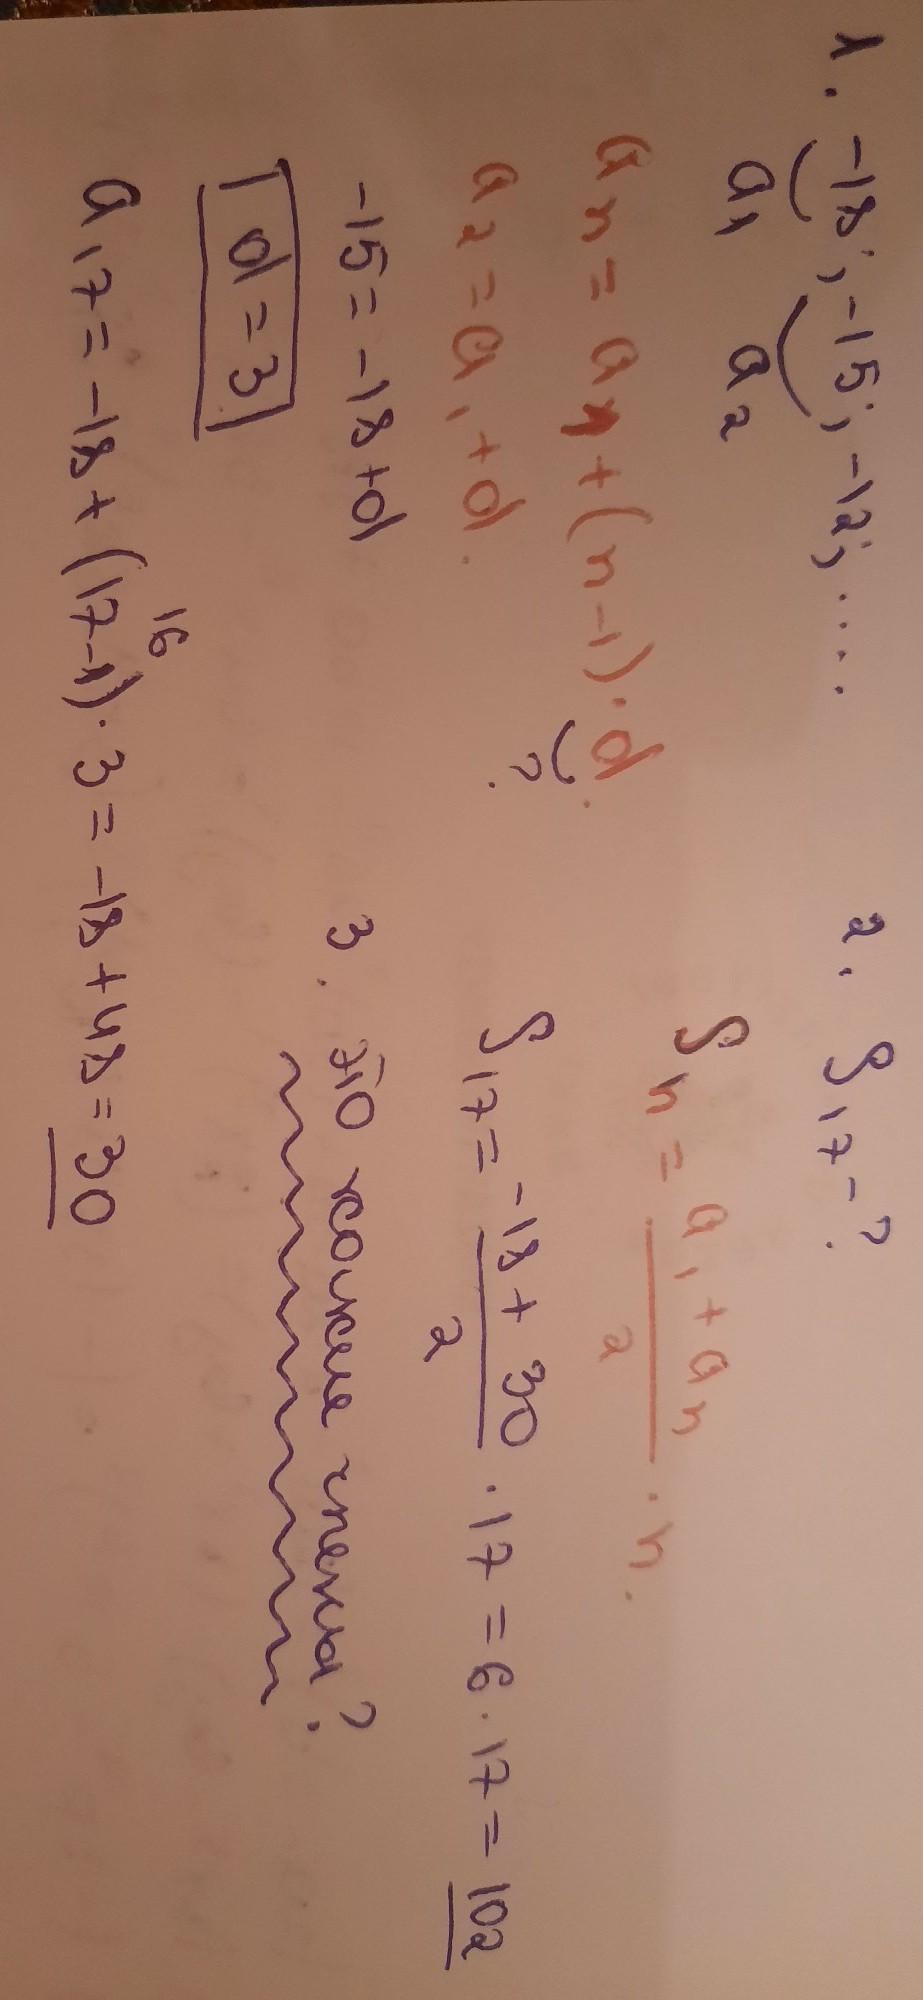 1. -18; -15; -12; ....
a1 a2
an = a1 + (n-1)·d.
?
a2 = a1 + d.
-15 = -18 + d
d = 3
16
a17 = -18 + (17-1)·3 = -18 + 48 = 30
2. S17 - ?
Sn = a1 + an / 2 · n.
S17 = -18 + 30 / 2 · 17 = 6 · 17 = 102
3. Это какие
?